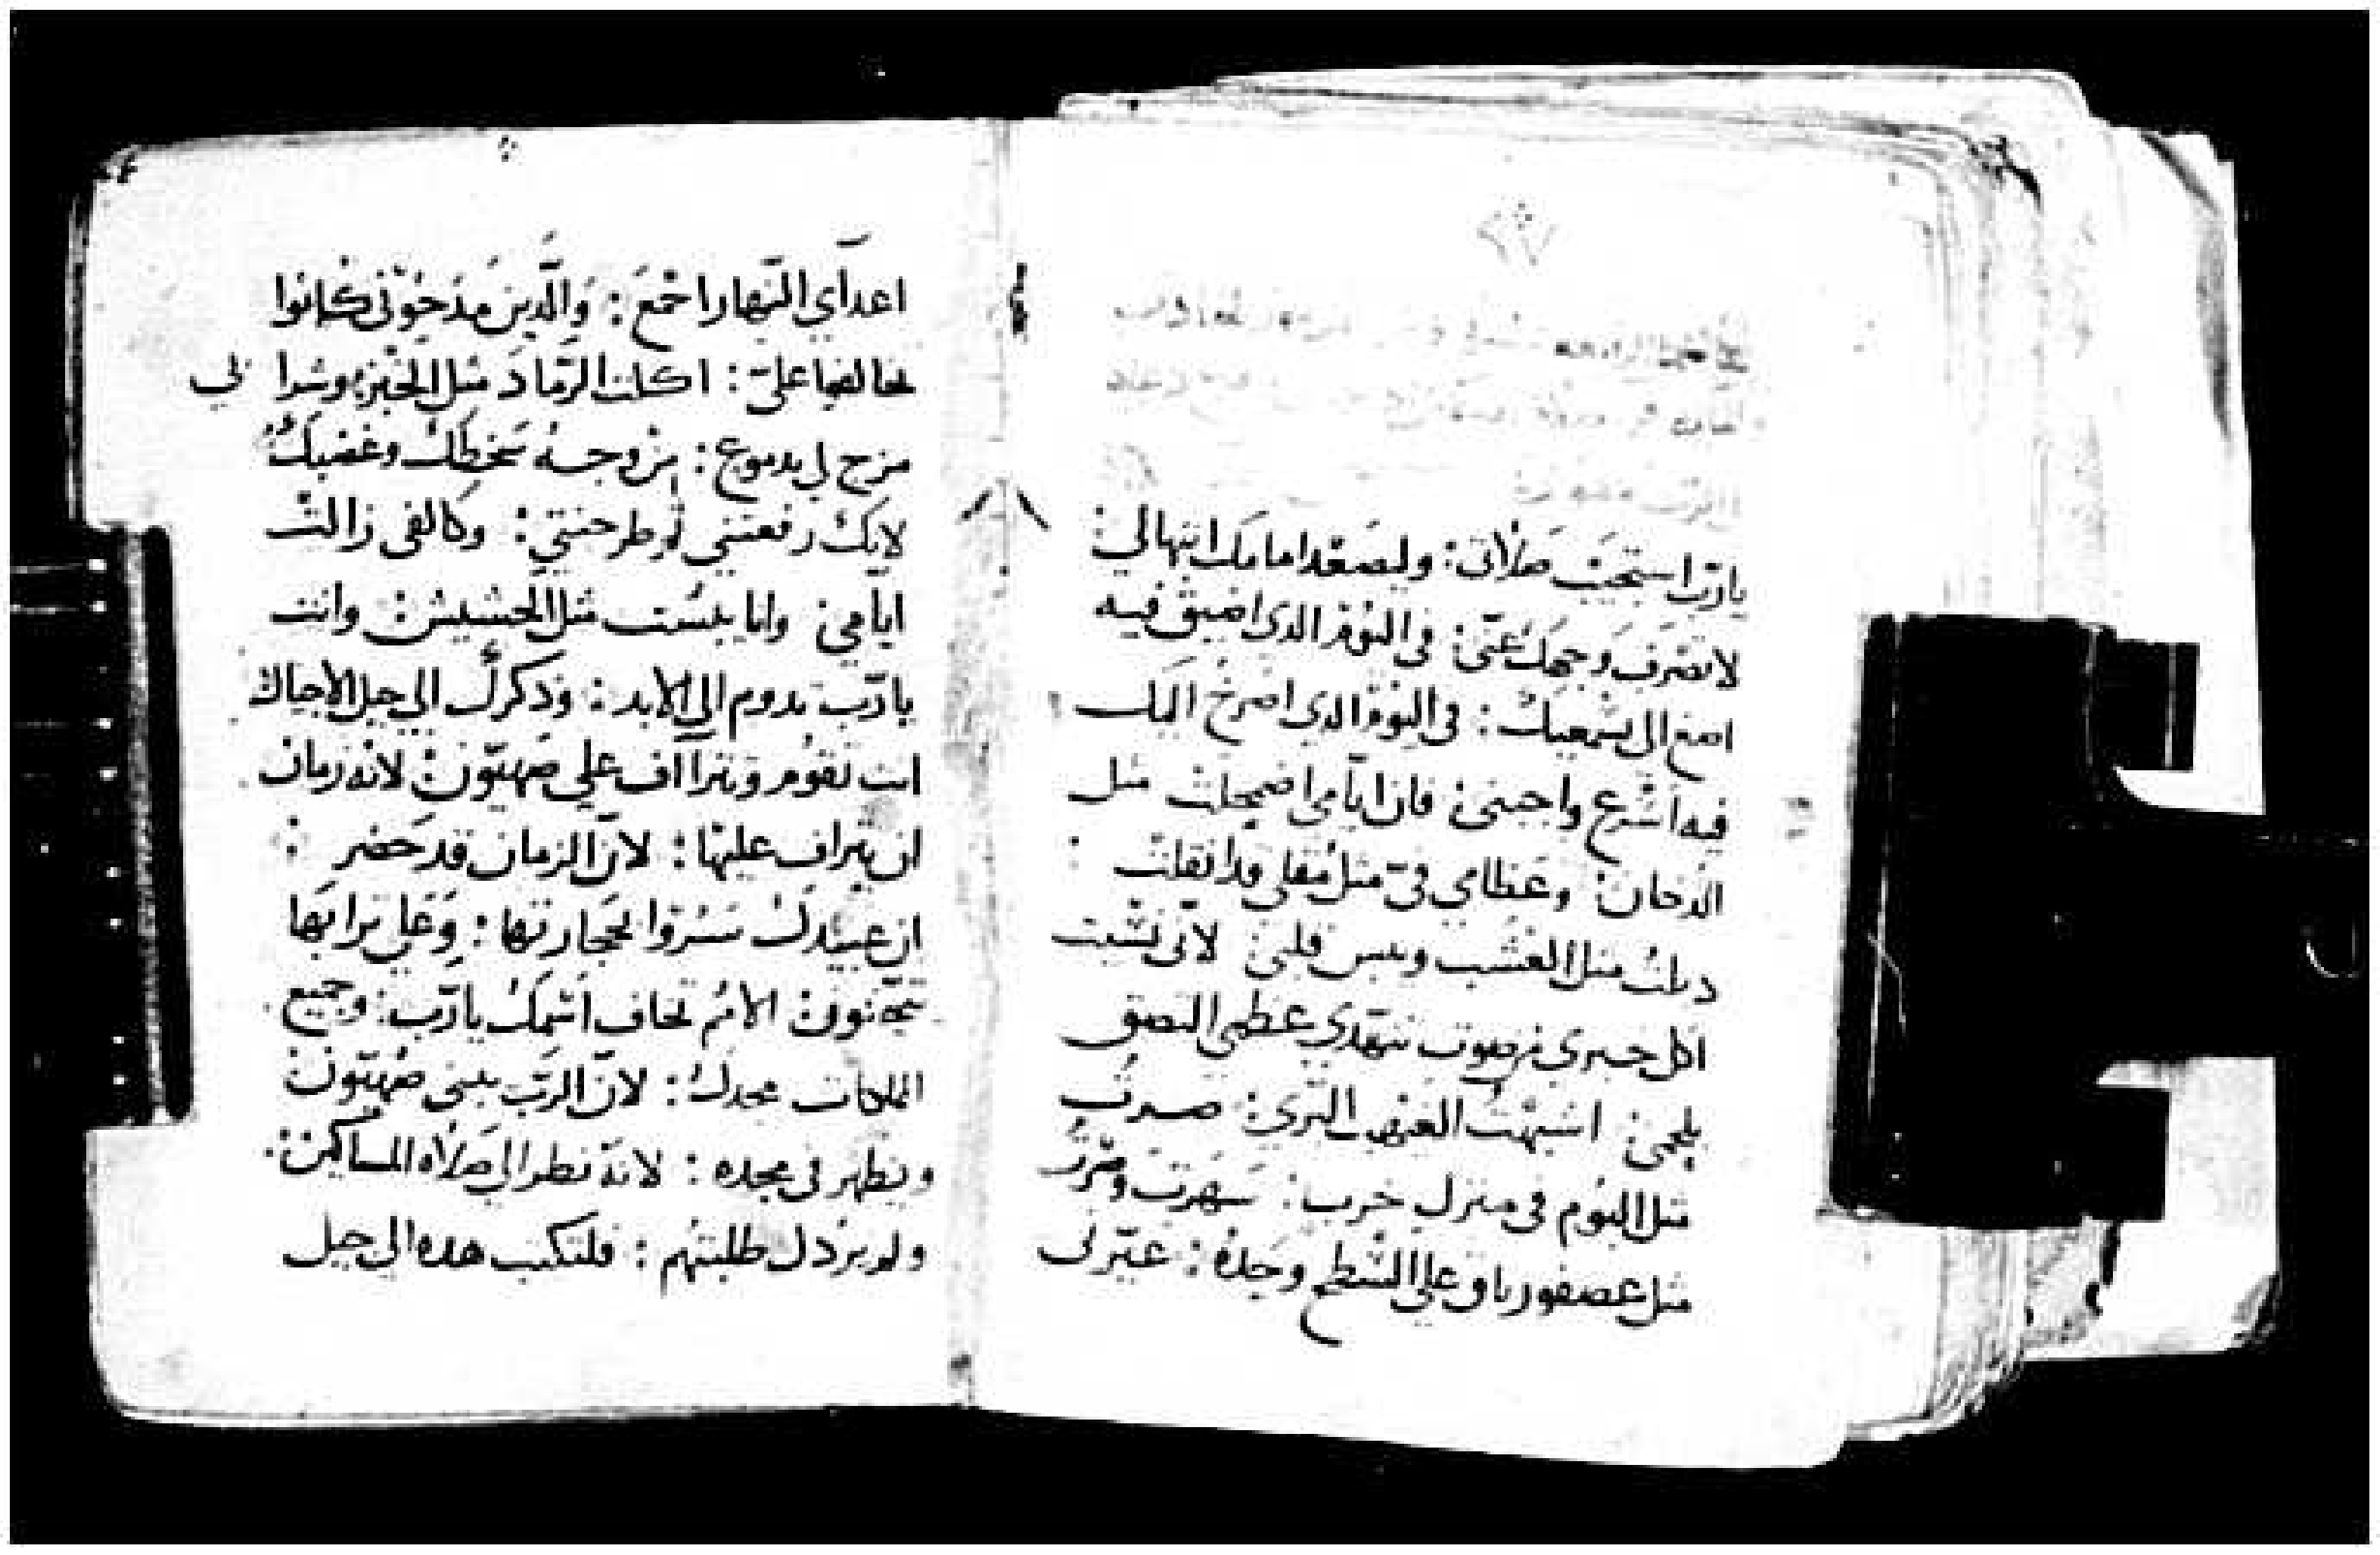 يا ربّ استجيب صلاتي: وليصعد امامك ابتهالي:
لا تصرف وجهك عنّي: في اليوم الدي اضيق فيه
اصغ الي بسمعك: في اليوم الدي اصرخ اليك
فيه اسرع واجبني: فان ايامي اضمحلت مثل
الدخان: وعظامي في مثل مقلي قد انقلت:
دبلت مثل العشب ويبس قلبي: لاني نسيت
اكل خبزي من صوت تنهدي عظمي التصق
بلحمي: اشبهت البري: صرت
مثل البوم في منزل خرب: سهرت وصرت
مثل عصفور باق علي السطح وحده: عيّرني
اعداي النهار اجمع: والدين مدحوني كانوا
تحالفوا عليّ: اكلت الرماد مثل الخبز: وشرابي
مزج لي بدموع: من وجه سخطك وغضبك:
لانك رفعتني وطرحتني: وكالفي زالت
ايامي: وانا يبست مثل الحشيش: وانت
يا ربّ تدوم الي الابد: ودكرك الي جيل الاجيال
انت تقوم وتتراآف علي صهيون: لانه زمان
ان تتراف عليها: لانّ الزمان قد حضر:
ان عبيدك سرّوا لحجارتها: وعلي ترابها
يتحننون: الامم تخاف اسمك يا ربّ: وجميع
الملوك مجدك: لانّ الربّ يبني صهيون
ويظهر في مجده: لانه نظر الي صلاه المساكين:
ولم يردل طلبتهم: فلتكتب هده الي جيل